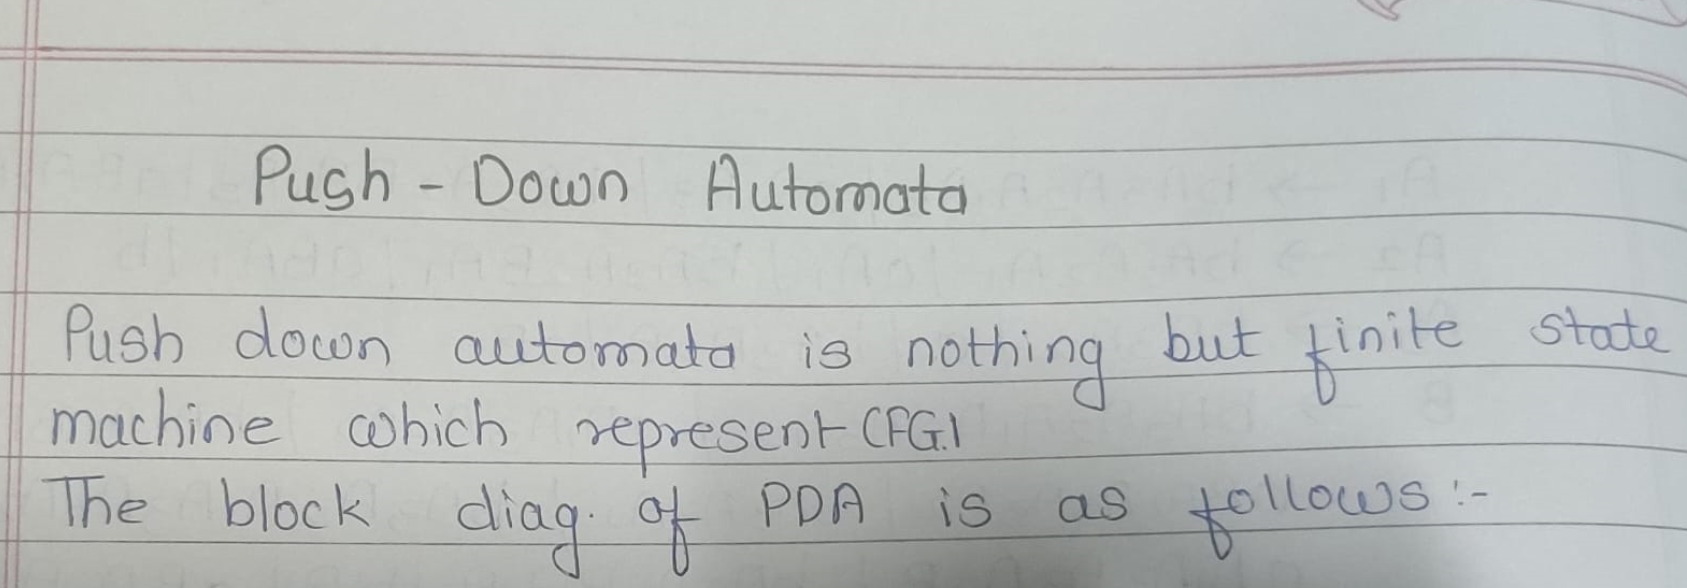 Push - Down Automata
Push down automata is nothing but finite state
machine which represent CFG.
The block diag. of PDA is as follows :-